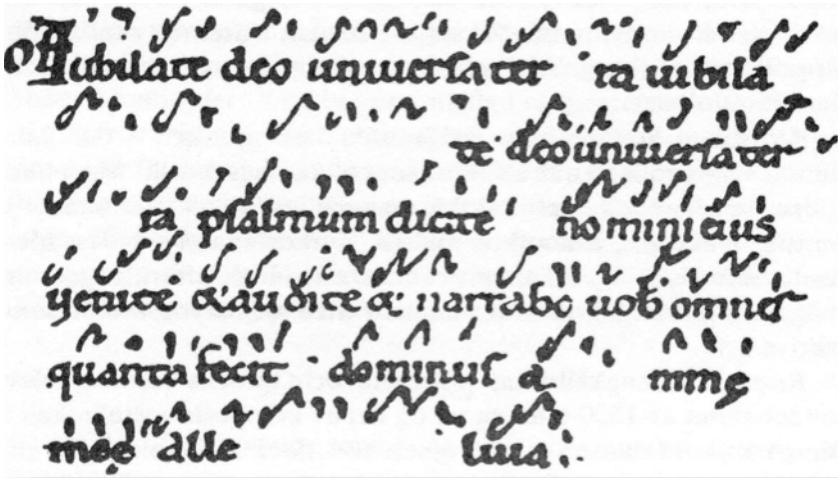 of Iubilate deo uniuersa ter ra iubila
te deo uniuersa ter
ra psalmum dicite no mini eius
uenite & audite & narrabo uob omnes
quanta fecit dominus a nime
mee alle luia.